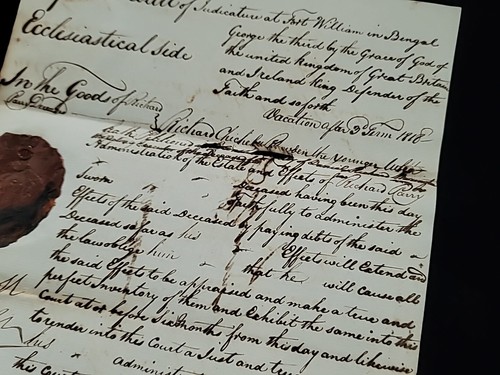 of Judicature at Fort William in Bengal
Ecclesiastical side
George the third by the Grace of God of
the united kingdom of Great Britain
and Ireland King Defender of the
Faith and so forth
Vacation after 3d Term 1818
In the Goods of Richard
Richard Chicheley the younger
Administration of the Estate and Effects of Richard
Deceased having been this day
Sworn faithfully to administer the
Effects of the said Deceased by paying debts of the said
Deceased so far as his Effects will Extend and
the law obliges him that he will cause all
the said Effects to be appraised and make a true and
perfect Inventory of them and Exhibit the same into this
Court at or before Six Months from this day and likewise
to render into this Court a Just and true
this Court administ